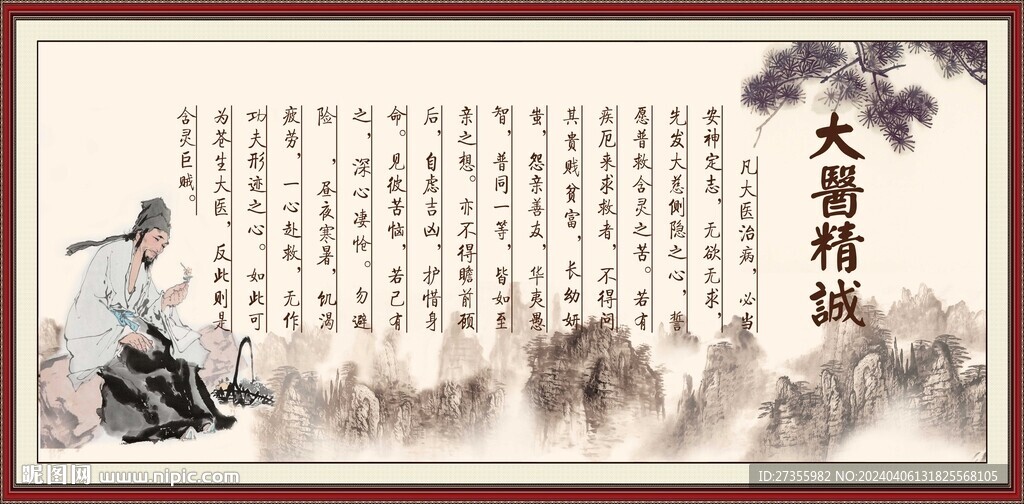 大醫精誠
凡大医治病，必当
安神定志，无欲无求，
先发大慈恻隐之心，誓
愿普救含灵之苦。若有
疾厄来求救者，不得问
其贵贱贫富，长幼妍
蚩，怨亲善友，华夷愚
智，普同一等，皆如至
亲之想。亦不得瞻前顾
后，自虑吉凶，护惜身
命。见彼苦恼，若己有
之，深心凄怆。勿避
险 ，昼夜寒暑，饥渴
疲劳，一心赴救，无作
功夫形迹之心。如此可
为苍生大医，反此则是
含灵巨贼。
昵图网 www.nipic.com
ID:27355982 NO:20240406131825568105